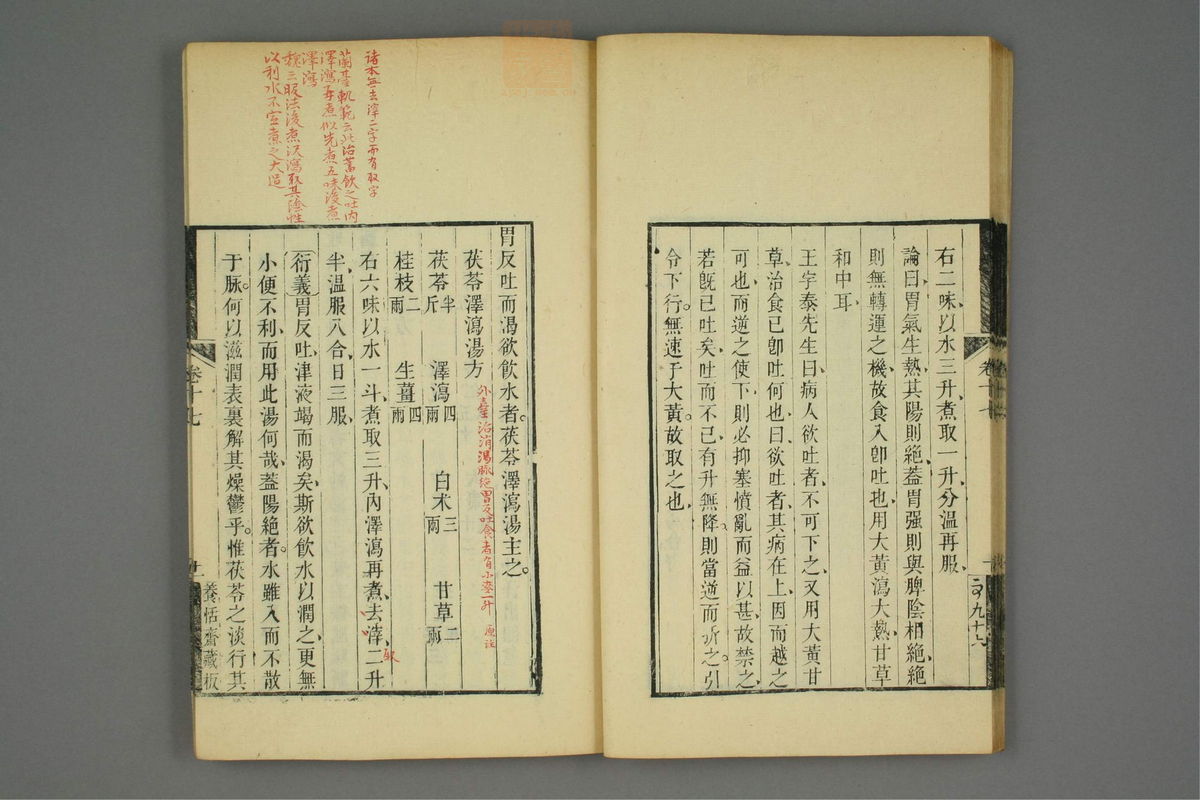 右二味以水三升煮取一升分溫再服
論曰胃氣生熱其陽則絕葢胃强則與脾陰相絕絕
則無轉運之機故食入卽吐也用大黃瀉大熱甘草
和中耳
王宇泰先生曰病人欲吐者不可下之又用大黃甘
草治食已卽吐何也曰欲吐者其病在上因而越之
可也而逆之使下則必抑塞憤亂而益以甚故禁之
若旣已吐矣吐而不已有升無降則當逆而折之引
令下行無速于大黃故取之也
卷十七
九十六
諸本無去滓二字而有取字
蘭臺軌範云此治蓄飲之吐內
澤瀉再煮似先煮五味後煮
澤瀉
魏三服法後煮沢瀉取其陰性
以利水不宜煮之大過
胃反吐而渴欲飲水者茯苓澤瀉湯主之
茯苓澤瀉湯方
外臺治消渴脉絶胃反吐食者有小麥一升 原註
茯苓半斤 澤瀉四兩 白朮三兩 甘草二兩
桂枝二兩 生薑四兩
右六味以水一斗煮取三升內澤瀉再煮去滓二升
取
半溫服八合日三服
衍義胃反吐津液竭而渴矣斯欲飲水以潤之更無
小便不利而用此湯何哉葢陽絕者水雖入而不散
于脉何以滋潤表裏解其燥鬱乎惟茯苓之淡行其
卷十七
十一
養恬齋藏板